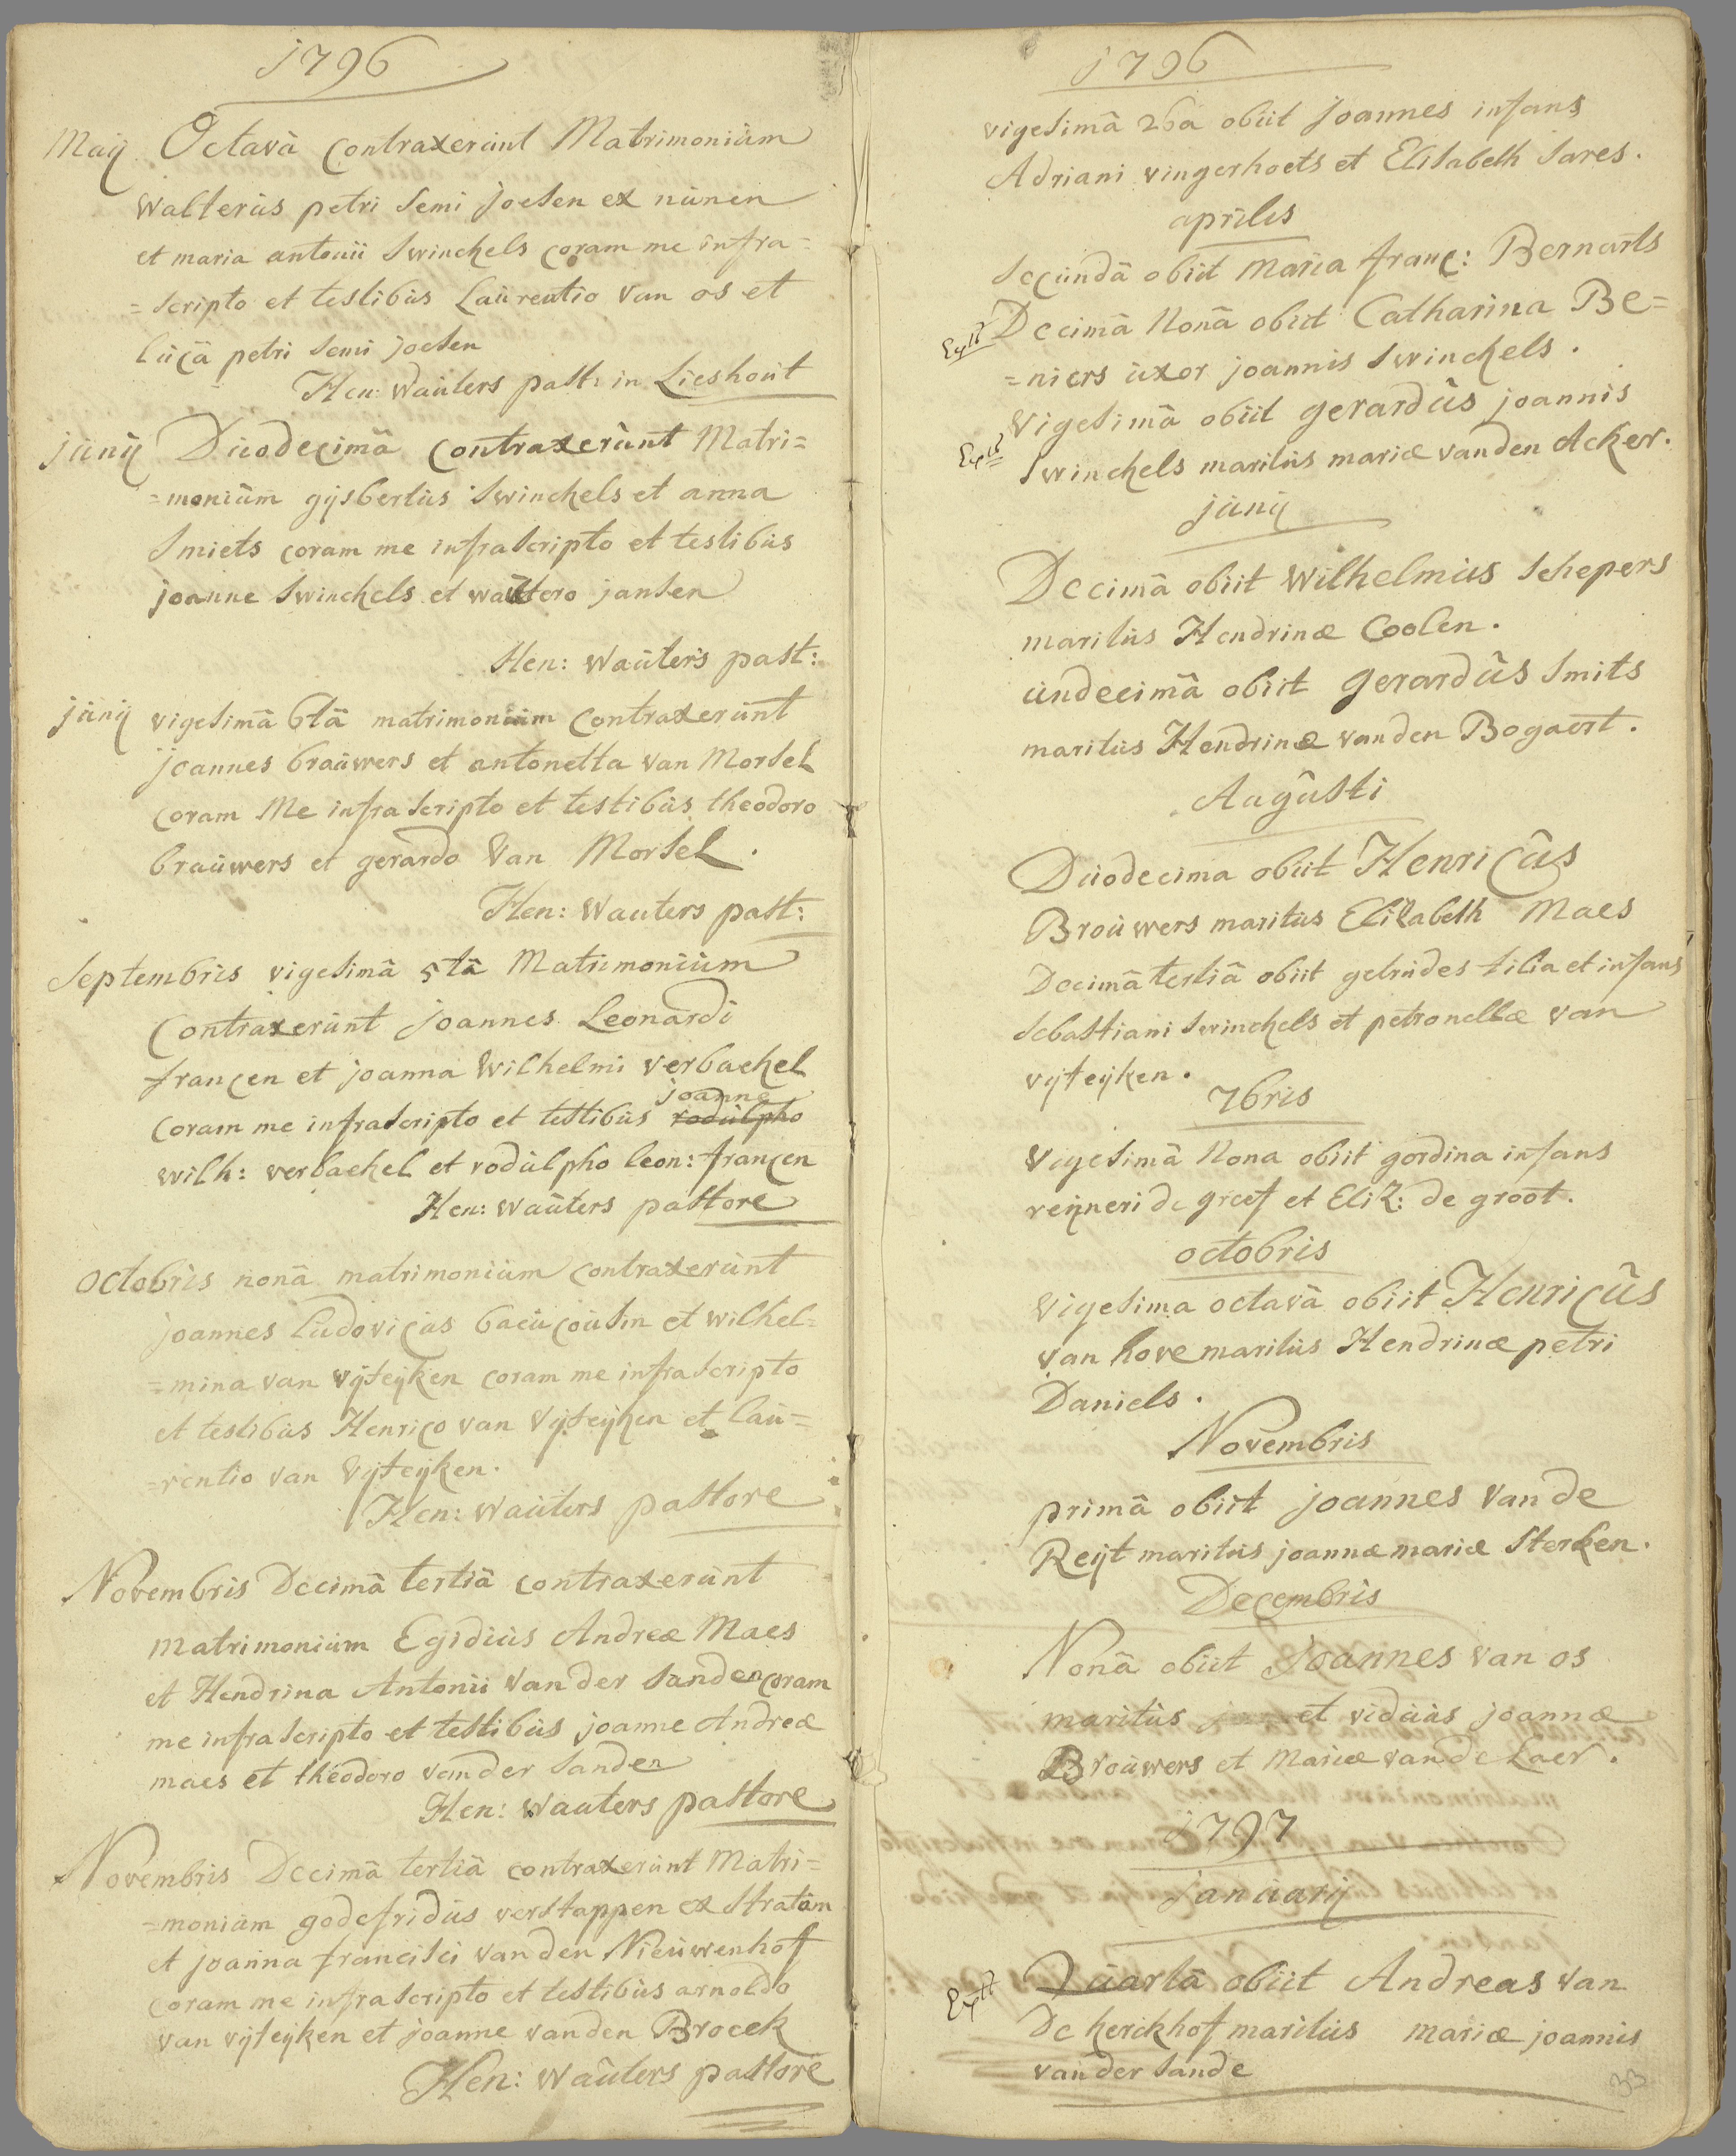 1796
Maij Octavâ Contraxerunt Matrimonium
Walterus petri Semi Joesen ex nunen
et maria antonii Swinckels coram me infra=
=scripto et testibus Laurentio Van os et
lucâ petri Semi joesen
Hen: Wauters past: in Lieshout
junij Duodecimâ contraxerunt Matri=
=monium gijsbertus Swinckels et anna
Smiets coram me infrascripto et testibus
joanne Swinckels et waltero jansen
Hen: Wauters past:
junij vigesimâ 6tâ matrimonium contraxerunt
joannes brauwers et antonetta van Morsel
coram Me infrascripto et testibus theodoro
brauwers et gerardo Van Morsel.
Hen: Wauters past:
Septembris vigesimâ 5tâ Matrimonium
Contraxerunt joannes Leonardi
francen et joanna Wilhelmi verbackel
joanne
coram me infrascripto et testibus rodulpho
wilh: verbackel et rodulpho leon: francen
Hen: Wauters pastore
octobris nonâ matrimonium contraxerunt
joannes ludovicus baucousin et wilhel=
=mina van vijfeijken coram me infrascripto
et testibus Henrico van Vijfeijken et lau=
=rentio van Vijfeijken.
Hen: Wauters pastore
Novembris Decimâ tertiâ contraxerunt
matrimonium Egidius Andreæ Maes
et Hendrina Antonii Van der Sanden coram
me infrascripto et testibus joanne Andreæ
maes et theodoro vander Sanden
Hen: Wauters pastore
Novembris Decimâ tertiâ contraxerunt Matri=
=monium godefridus verstappen ex Stratum
et joanna francisci van den Nieuwenhof
coram me infrascripto et testibus arnoldo
van vijfeijken et joanne vanden Broeck
Hen: Wauters pastore
1796
vigesimâ 26a obiit joannes infans
Adriani vingerhoets et Elisabeth Sares.
aprilis
Secundâ obiit Maria franc: Bernarts
Decimâ Nonâ obiit Catharina Be=
=niers uxor joannis Swinckels.
Vigesimâ obiit gerardus joannis
Swinckels maritus mariæ vanden Acker.
junij
Decimâ obiit Wilhelmus Schepers
maritus Hendrinæ Coolen.
undecimâ obiit gerardus Smits
maritus Hendrinæ vanden Bogaert.
Augusti
Duodecima obiit Henricus
Brouwers maritus Elisabeth Maes
Decimâ tertiâ obiit getrudes filia et infans
Sebastiani Swinckels et petronellæ van
vijfeijken.
7bris
Vigesimâ Nona obiit gordina infans
reijneri de greef et Eliz: de groot.
octobris
Vigesima octavâ obiit Henricus
van hove maritus Hendrinæ petri
Daniels.
Novembris
primâ obiit joannes Van de
Reijt maritus joannæ mariæ Sterken.
Decembris
Nonâ obiit Joannes van os
maritus et viduus joannæ
Brouwers et Mariæ van de Laer.
1797
januarij
Quartâ obiit Andreas Van
De kerckhof maritus mariæ joannis
vander Sande
33